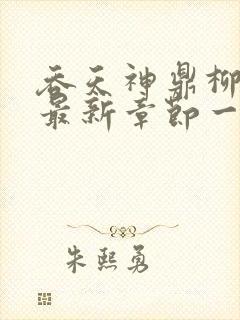 吞天神鼎柳
最新章节一
朱熙勇